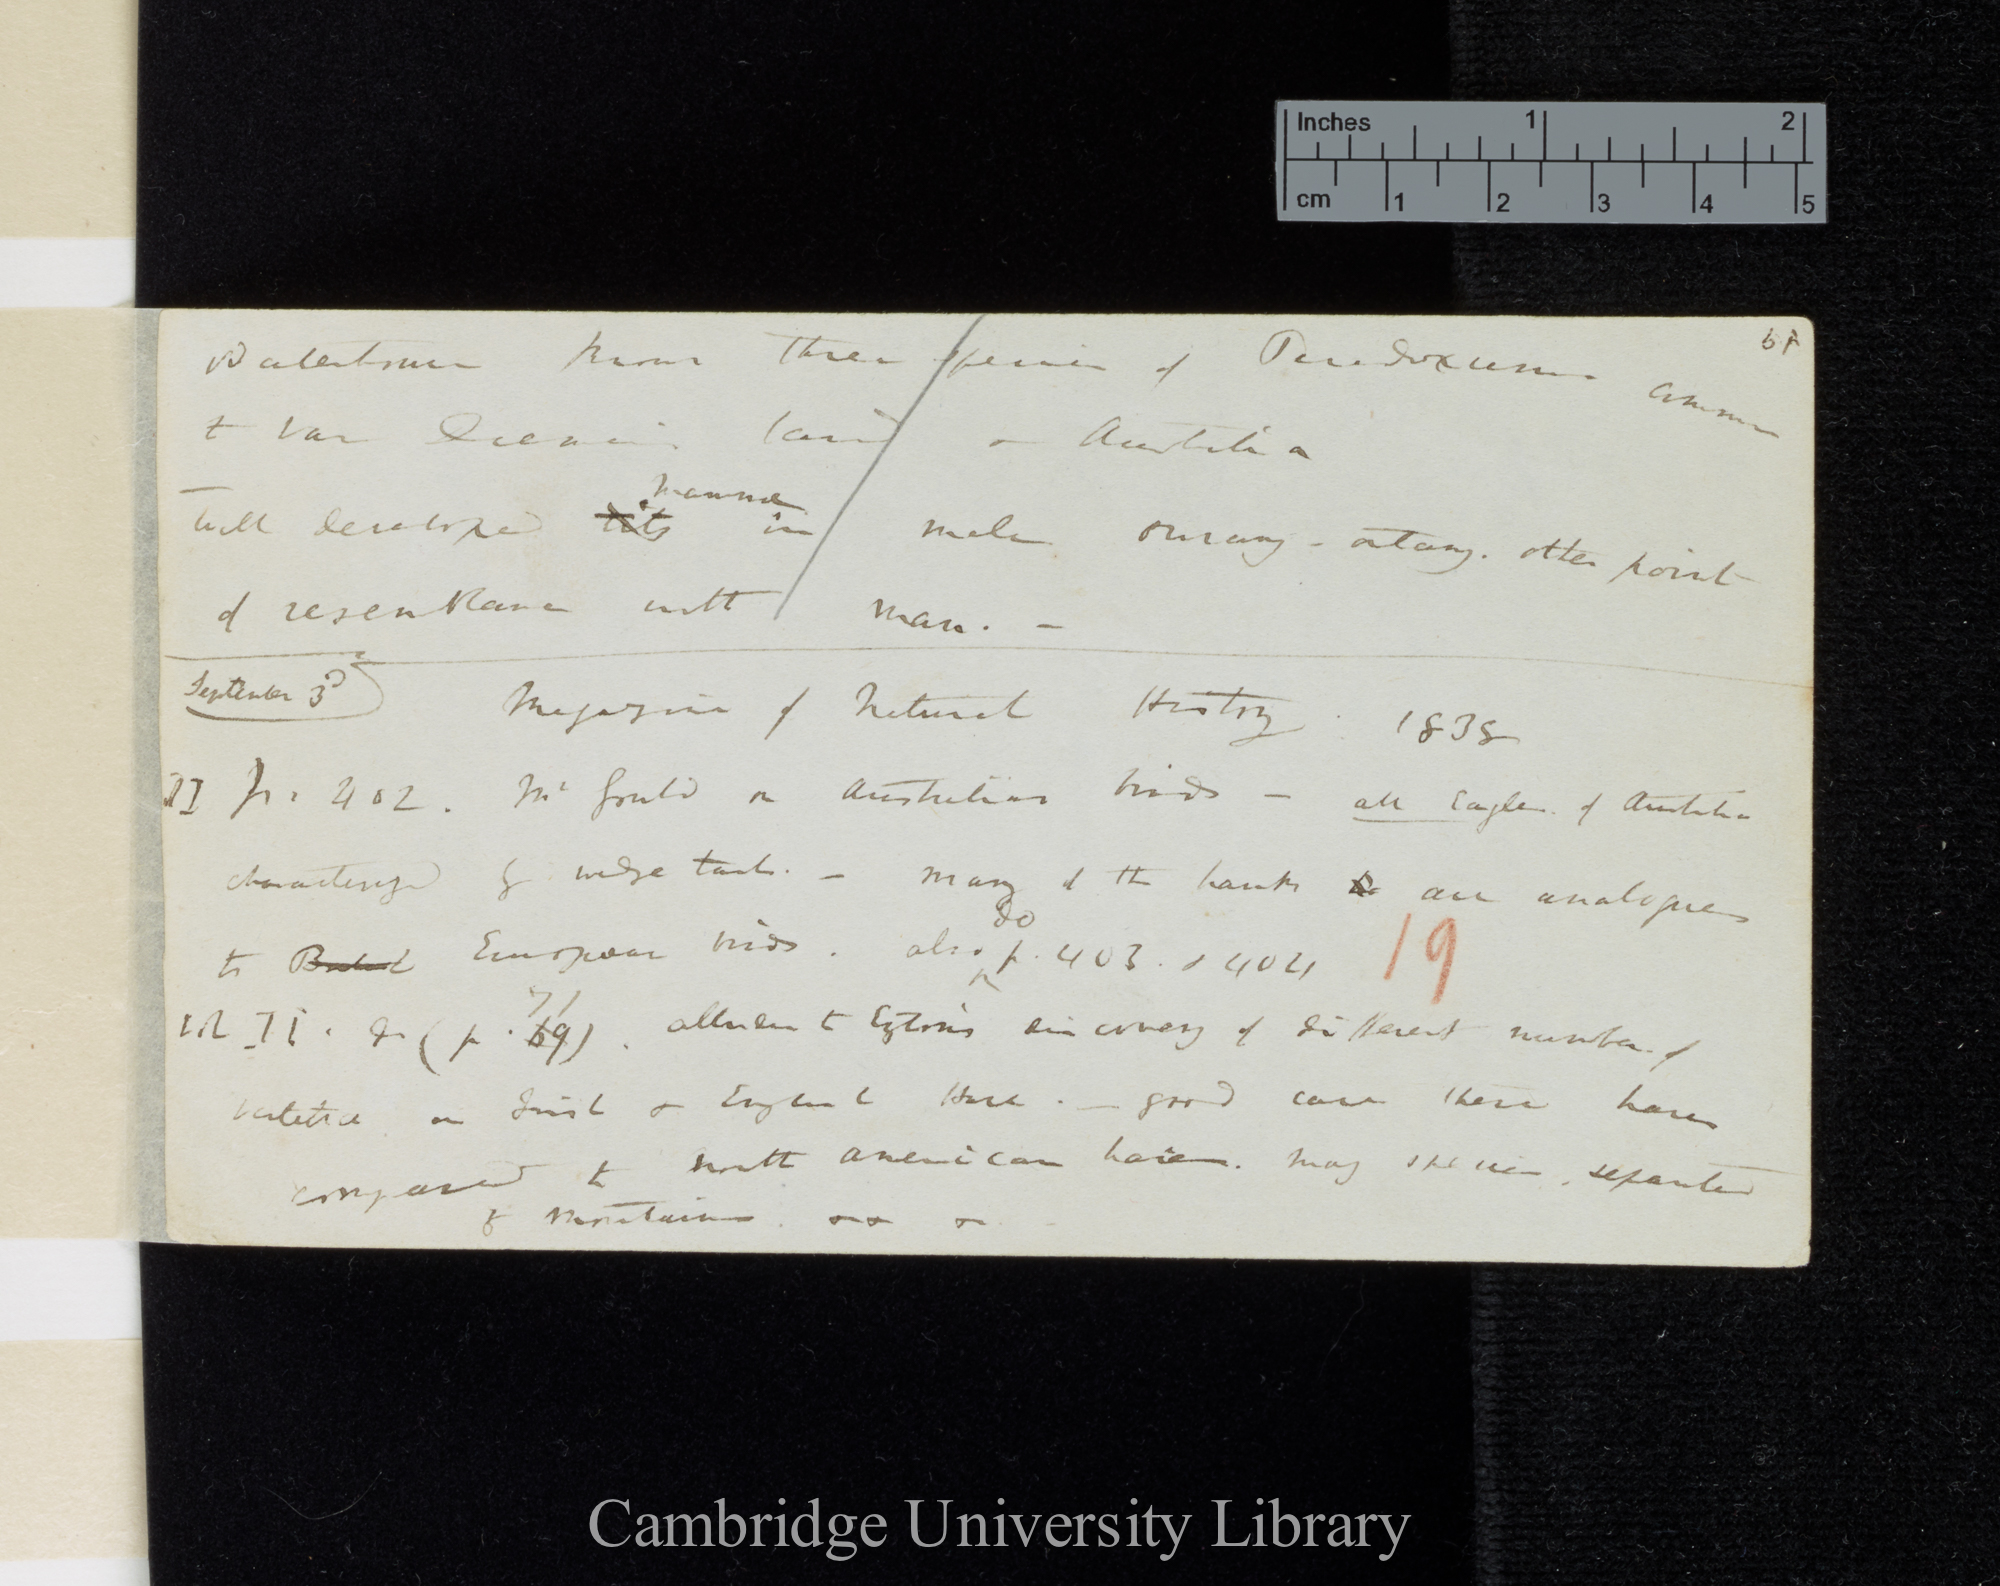 Inches 1 2
cm 1 2 3 4 5
Waterhouse knows three species of Paradoxurus common
to Van Diemen's land & Australia
mammae
Well developed tits in male ourang-outang. other point
of resemblance with man. —
September 3d Magazine of Natural History. 1838
II p. 402. Mr Gould on Australian birds — all Eagles of Australia
characterized by wedge tails. — many of the hawks are analogues
do
to British European birds. also p. 403. & 404 19
71
Vol II. do (p. 69). allusion to Eyton's discovery of different number of
vertebrae in Irish & English Hare. — good case these hares
compared to North American hares. May species, separated
by mountains. &c &c
Cambridge University Library